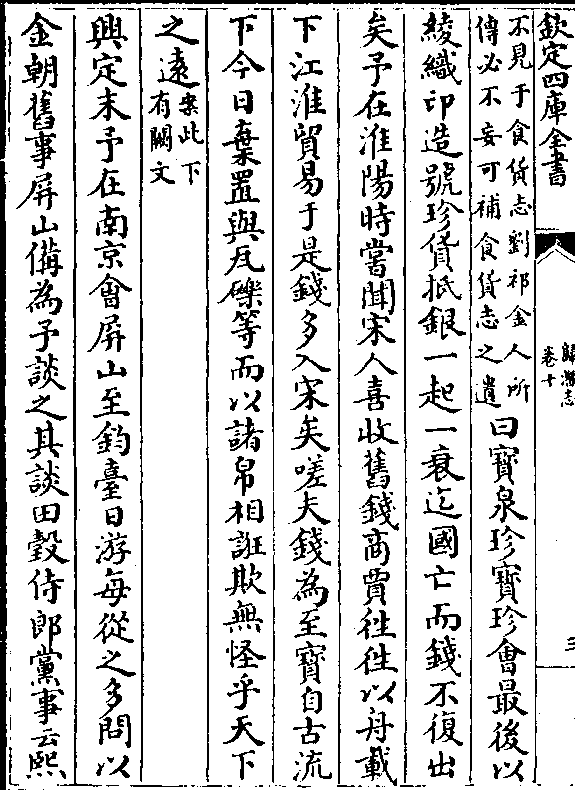 欽定四庫全書
歸潛志
卷十
三
不見于食貨志劉祁金人所
傳必不妄可補食貨志之遺
曰寳泉珍寳珍會最後以
綾織印造號珍貨抵銀一起一衰迄國亡而錢不復出
矣予在淮陽時嘗聞宋人喜收舊錢商賈徃徃以舟載
下江淮貿易于是錢多入宋矣嗟夫錢為至寳自古流
下今日棄置與瓦礫等而以諸帛相誑欺無怪乎天下
之遠
案此下
有闕文
興定末予在南京會屏山至鈞臺日游每從之多問以
金朝舊事屏山備為予談之其談田瑴侍郎黨事云熙